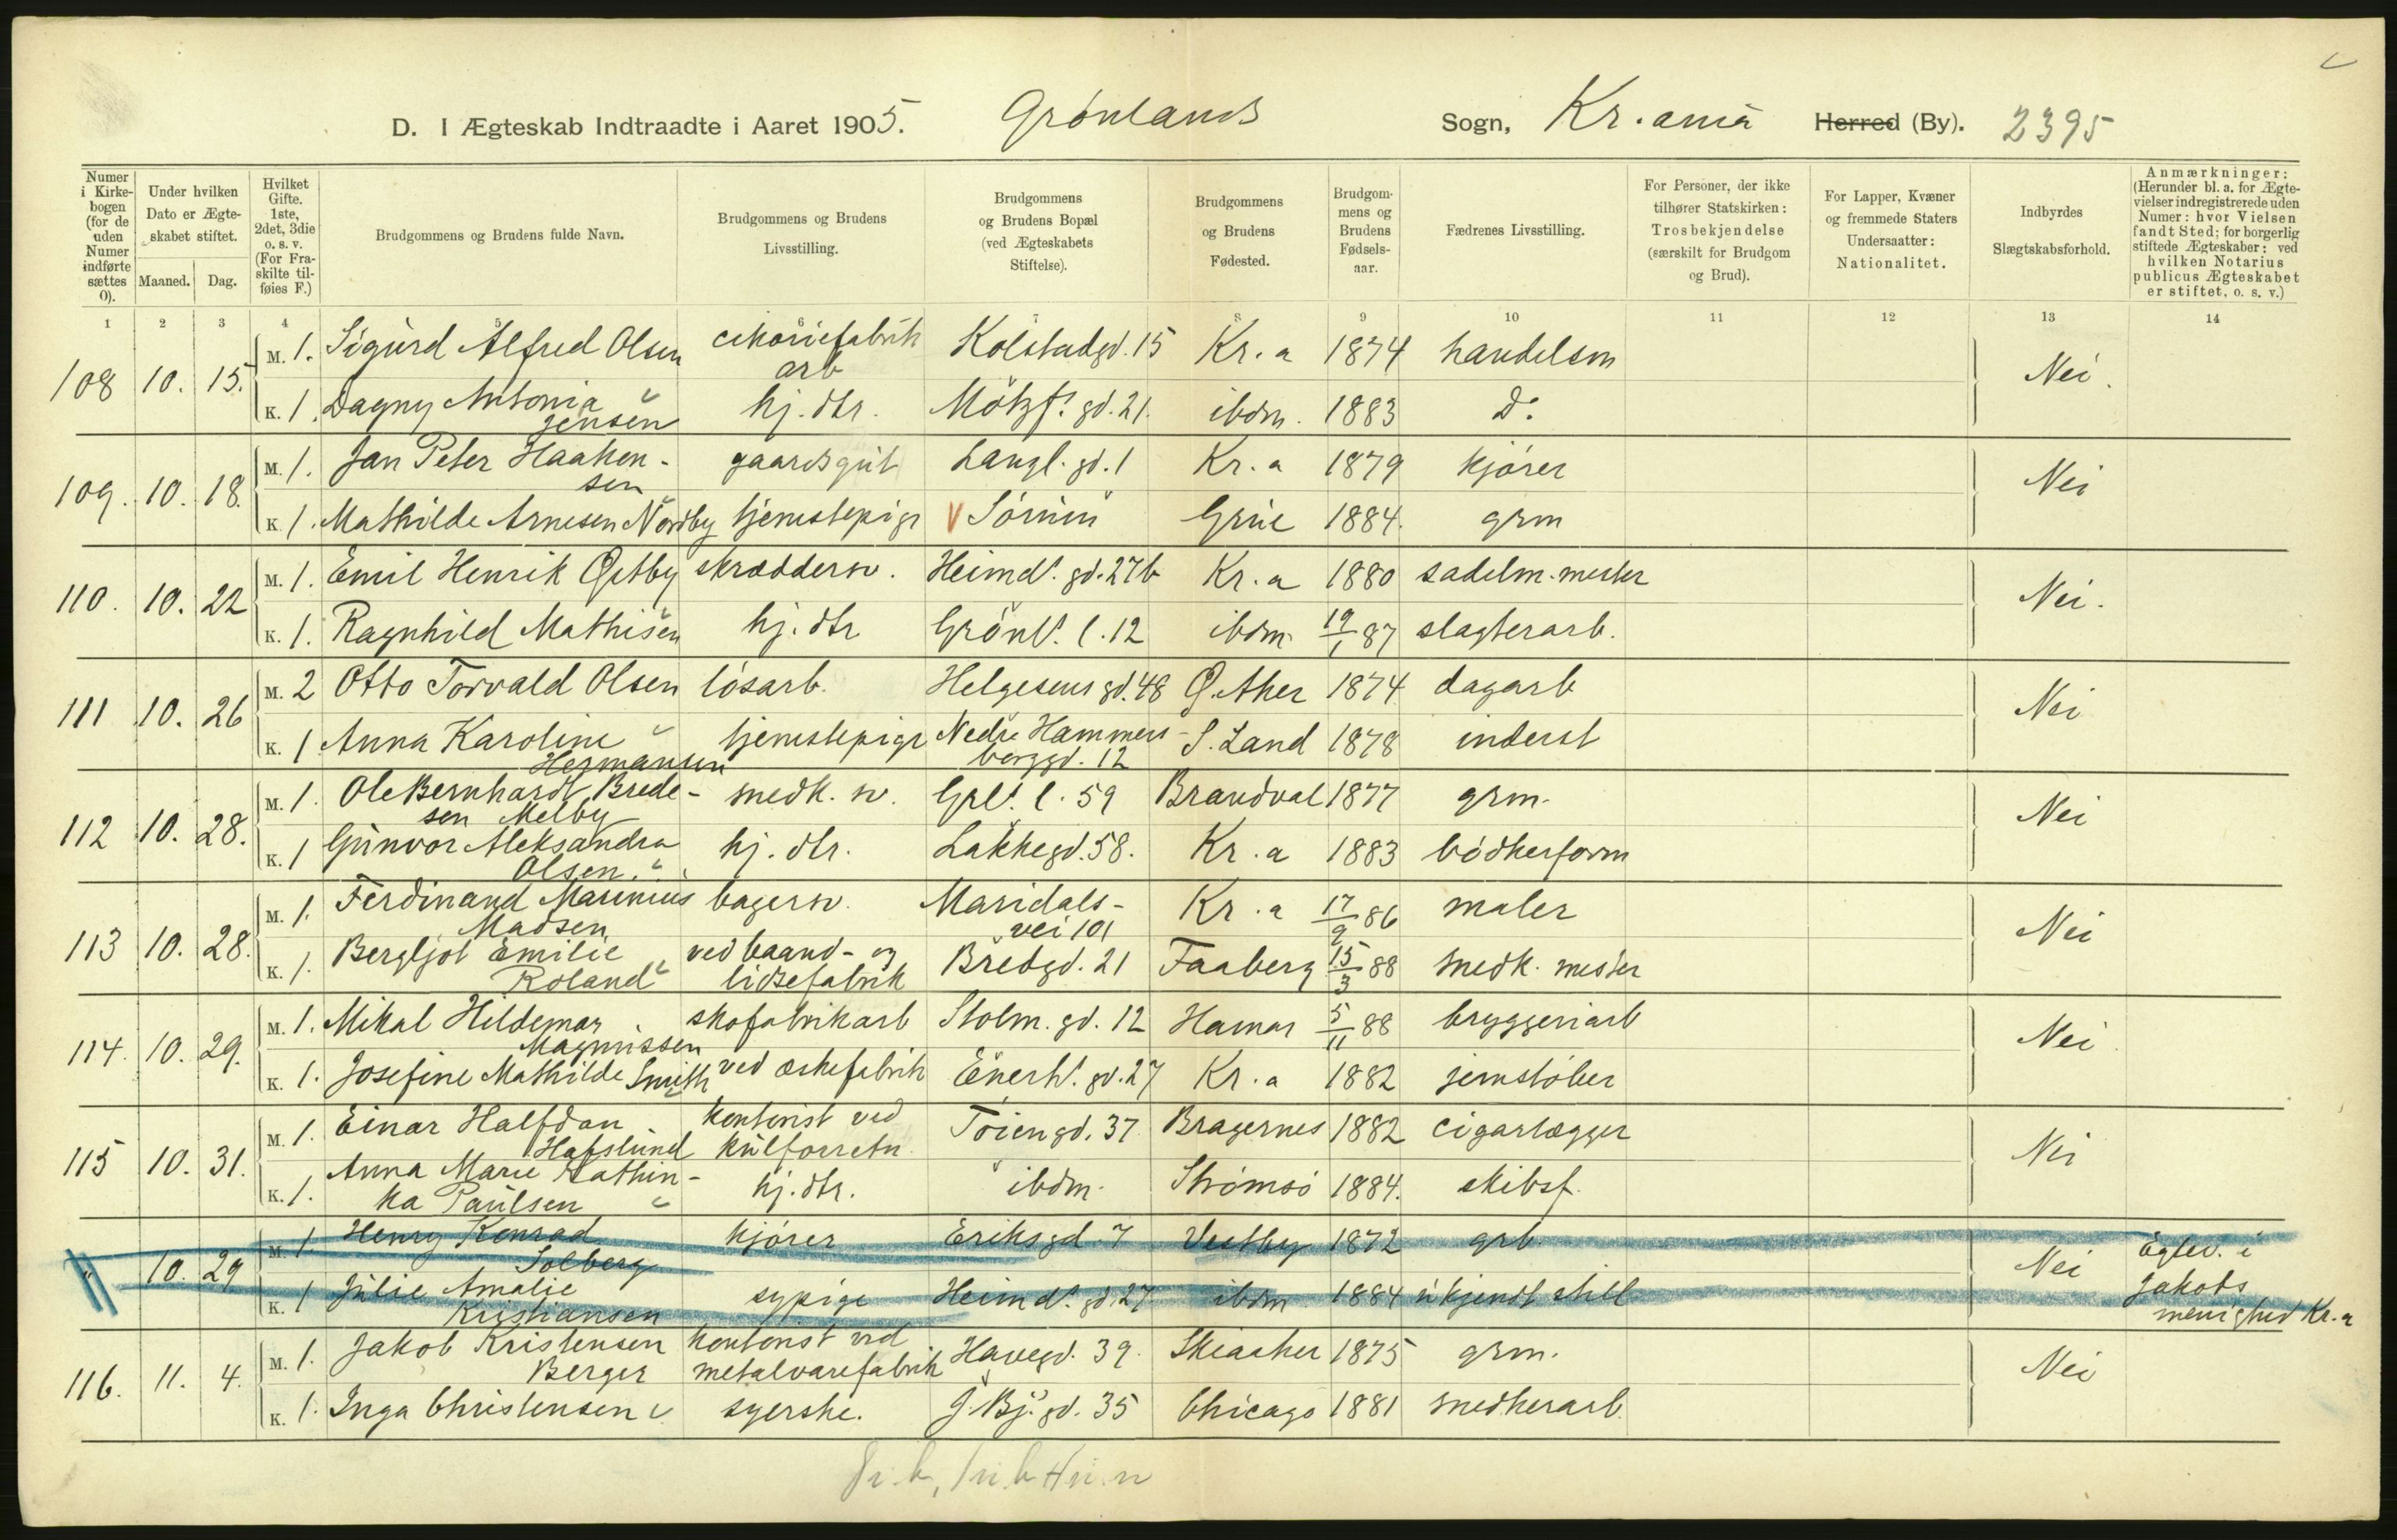 D. I Ægteskab Indtraadte i Aaret 1905. Grønlands Sogn, Kr.ania Herred (By). 2395
Numer i Kirkebogen (for de uden Numer indførte sættes 0).
Under hvilken Dato er Ægteskabet stiftet.
Maaned. Dag.
Hvilket Gifte. 1ste, 2det, 3die o. s. v. (For Fraskilte tilføies F.)
Brudgommens og Brudens fulde Navn.
Brudgommens og Brudens Livsstilling.
Brudgommens og Brudens Bopæl (ved Ægteskabets Stiftelse).
Brudgommens og Brudens Fødested.
Brudgommens og Brudens Fødselsaar.
Fædrenes Livsstilling.
For Personer, der ikke tilhører Statskirken: Trosbekjendelse (særskilt for Brudgom og Brud).
For Lapper, Kvæner og fremmede Staters Undersaatter: Nationalitet.
Indbyrdes Slægtskabsforhold.
Anmærkninger: (Herunder bl. a. for Ægtevielser indregistrerede uden Numer: hvor Vielsen fandt Sted; for borgerlig stiftede Ægteskaber: ved hvilken Notarius publicus Ægteskabet er stiftet, o. s. v.)
1 2 3 4 5 6 7 8 9 10 11 12 13 14
108 10. 15. M. 1. Sigurd Alfred Olsen cikoriefabrik arb Kolstadgd. 15 Kr.a 1874 handelsm Nei.
K. 1. Dagny Antonia Jensen hj. dtr. Motzf. gd. 21. ibdm. 1883 Do
109. 10. 18. M. 1. Jan Peter Haakensen gaardsgut Langl. gd. 1 Kr.a 1879 kjører Nei
K. 1. Mathilde Arnesen Nordby tjenestepige V Sørum Grue 1884. grm
110. 10. 22 M. 1. Emil Henrik Østby skræddersv. Heimd. gd. 27b Kr.a 1880 sadelm. mester Nei.
K. 1. Ragnhild Mathisen hj. dtr Grønl. l. 12 ibdm 19/1 87 slagterarb.
111 10. 26 M. 2 Otto Torvald Olsen løsarb. Helgesens gd. 48 Ø. Aker 1874 dagarb Nei
K. 1 Anna Karoline Hermansen tjenestepige Nedre Hammersborggd. 12 S. Land 1878 inderst
112 10. 28. M. 1. Ole Bernhardt Bredesen Melby snedk. sv. Grl. l. 59 Brandval 1877 grm. Nei
K. 1 Gunvor Aleksandra Olsen hj. dtr. Lakkegd. 58. Kr.a 1883 bødkerform
113 10. 28. M. 1. Ferdinand Marinius Madsen bagersv. Maridalsvei 101 Kr.a 17/9 86 maler Nei
K. 1. Bergljot Emilie Roland ved baand- og lidsefabrik Bredgd. 21 Faaberg 15/3 88 snedk. mester
114. 10. 29. M. 1. Mikal Hildemar Magnussen skofabrikarb Stolm. gd. 12 Hamar 5/11 88 bryggeriarb Nei
K. 1. Josefine Mathilde Smith ved æskefabrik Enerh. gd. 27 Kr.a 1882 jernstøber
115 10. 31. M. 1. Einar Halfdan Hafslund kontorist ved kulforretn. Tøiengd. 37 Bragernes 1882 cigarlægger Nei
K. 1. Anna Marie Kathinka Paulsen hj. dtr. ibdm. Strømsø 1884. skibsf.
" 10. 29 M. 1. Henry Konrad Solberg kjører Eriksgd. 7 Vestby 1872 grb. Nei Egtev. i Jakobs menighed Kr.a
K. 1 Julie Amalie Kristiansen sypige Heimd. gd. 27 ibdm 1884 ukjendt still
116. 11. 4. M. 1. Jakob Kristensen Berger kontorist ved metalvarefabrik Havegd. 39. Skiaker 1875 grm. Nei
K. 1. Inga Christensen syerske. J. Bj. gd. 35 Chicago 1881 snedkerarb.